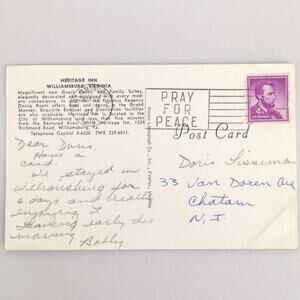 HERITAGE INN
WILLIAMSBURG, VIRGINIA
Magnificent new Guest Rooms and Family Suites,
elegantly decorated and equipped with every mod-
ern convenience. In addition, the fabulous Regency
Dining Room offers food and drink in the Grand
Manner. Exquisite Banquet and Convention facilities
are also available. Heritage Inn is located in the
City of Williamsburg and less than five minutes
from the Restored Area. Write Heritage Inn, 1324
Richmond Road, Williamsburg, Va.
Telephone Capitol 9-6220. TWX 229-6011.
PRAY
FOR
PEACE
Post Card
Dear Doris,
Have a
card.
We stayed in
Williamsburg for
6 days and really
enjoying it.
Leaving early this
morning
Bobby
Doris
33 Van Doren Ave
Chatam
N. J.